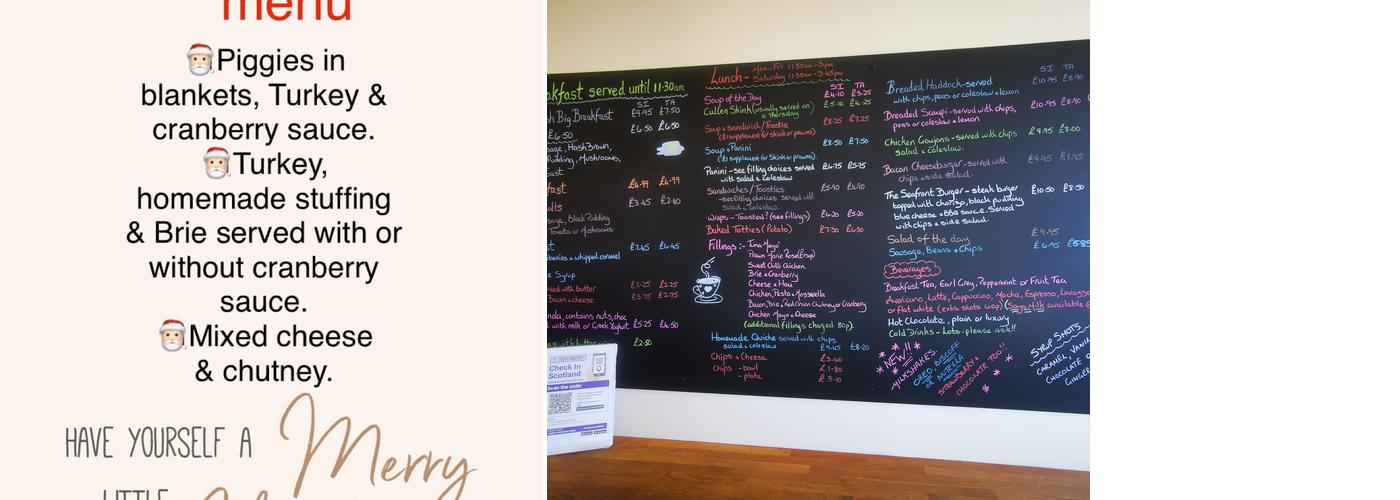 menu
🎅Piggies in
blankets, Turkey &
cranberry sauce.
🎅Turkey,
homemade stuffing
& Brie served with or
without cranberry
sauce.
🎅Mixed cheese
& chutney.
HAVE YOURSELF A Merry
LITTLE
akfast served until 11:30am
SI TA
sh Big Breakfast £9.95 £7.50
£6.50 £6.50 £6.50
sage, Hash Brown,
Pudding, Mushrooms,
fast £6.99 £4.99
olls £3.45 £2.90
sage, Black Pudding
Tomato or Mushrooms
£7.45 £6.45
berries & whipped caramel
e Syrup
ved with butter £2.25 £1.25
Bacon & cheese £3.75 £2.75
nola, contains nuts, choc
with milk or Greek Yoghurt £5.25 £4.50
£2.50
Check In
Scotland
Scan the code:
Lunch - Mon-Fri 11:30am-3pm
Saturday 11:30am-3:45pm
SI TA
Soup of the Day £4.10 £3.25
Cullen Skink (usually served on £5.10 £4.25
a Thursday)
Soup & Sandwich/Toastie £8.25 £7.25
(£1 supplement for skink or prawns)
Soup & Panini £8.50 £7.50
(£1 supplement for Skink or prawns)
Panini - see filling choices served £6.75 £5.75
with salad & coleslaw
Sandwiches/Toasties £5.90 £4.90
- see filling choices served with
salad & coleslaw
Wraps - Toasted? (see fillings) £6.20 £5.20
Baked Tatties (Potato) £7.30 £6.30
Fillings:- Tuna Mayo
Prawn Marie Rose (Crisp)
Sweet Chilli Chicken
Brie & Cranberry
Cheese & Ham
Chicken, Pesto & Mozzarella
Bacon, Brie & Red Onion Chutney or Cranberry
Chicken Mayo & Cheese
(additional fillings charged 80p)
Homemade Quiche served with chips £9.45 £8.20
salad & coleslaw
Chips & Cheese £3.60
Chips - bowl £1.80
- plate £3.10
SI TA
Breaded Haddock - served £10.95 £8.90
with chips, peas or coleslaw & lemon
Breaded Scampi - served with chips, £10.95 £8.90
peas or coleslaw & lemon
Chicken Goujons - served with chips £9.95 £8.00
salad & coleslaw.
Bacon Cheeseburger - served with £9.95 £7.95
chips & side salad.
The Seafront Burger - steak burger £10.50 £8.50
topped with chorizo, black pudding
blue cheese & BBQ sauce. Served
with chips & side salad.
Salad of the day £9.95
Sausage, Beans & Chips £6.95 £5.85
Beverages
Breakfast Tea, Earl Grey, Peppermint or Fruit Tea
Americano, Latte, Cappuccino, Mocha, Espresso, Lavazza
or flat white (extra shots 60p) (Soya Milk available
Hot Chocolate, plain or luxury
Cold Drinks - Lots - please ask!!
*NEW!!*
MILKSHAKES
OREO, BISCOFF
OR NUTELLA
STRAWBERRY &
CHOCOLATE TOO!!
SYRUP SHOTS
CARAMEL, VANIL
CHOCOLATE
GINGER